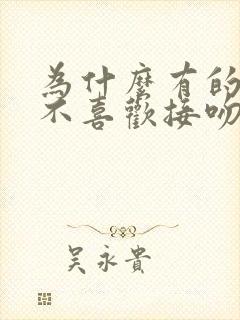 為什麼有的
不喜歡接吻
吳永貴